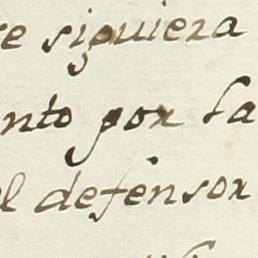 re siguiera
ento por la
el defensor